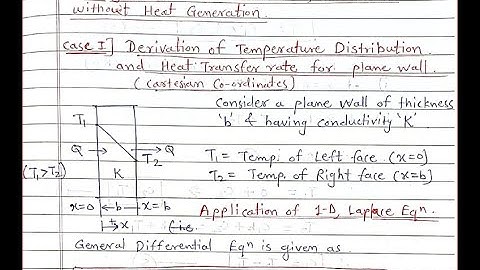 without Heat Generation.
Case I] Derivation of Temperature Distribution
and Heat Transfer rate for plane wall.
(cartesian Co-ordinates)
Consider a plane wall of thickness
'b' & having conductivity 'K'
T1
Q
Q
T2
(T1>T2)
K
T1 = Temp. of Left face (x=0)
T2 = Temp. of Right face (x=b)
x=0
b
x=b
x
Application of 1-D, Laplace Eqn.
General Differential Eqn is given as